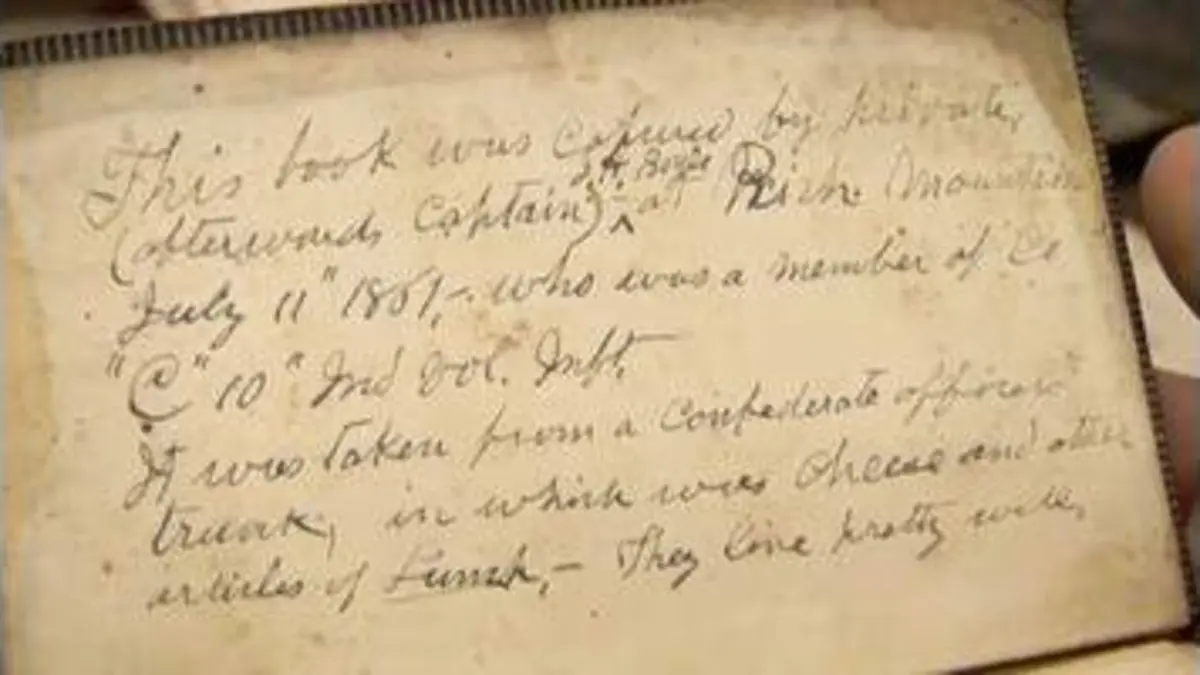 This book was captured by private,
S.H. Bogle
(afterwards Captain) - ^ at Rich. Mountain
July 11" 1861, - who was a member of Co
"C" 10" Ind Vol. Inft.
It was taken from a Confederate officers
trunk, in which was cheese and other
articles of Lunch, - They live pretty well,